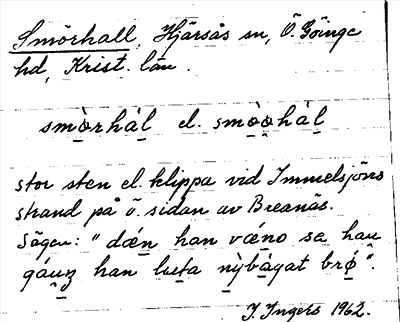 Smörhall, Hjärsås sn, Ö. Göinge
hd, Krist. län.
smò̤rhàḷ el. smò̤o̤hàḷ
stor sten el. klippa vid Immelsjöns
strand på ö. sidan av Breanäs.
Sägen: "dæ̀n han vǽno sa hau
gáuŋ han lueta nỳbàgat brǿ".
I. Ingers 1962.